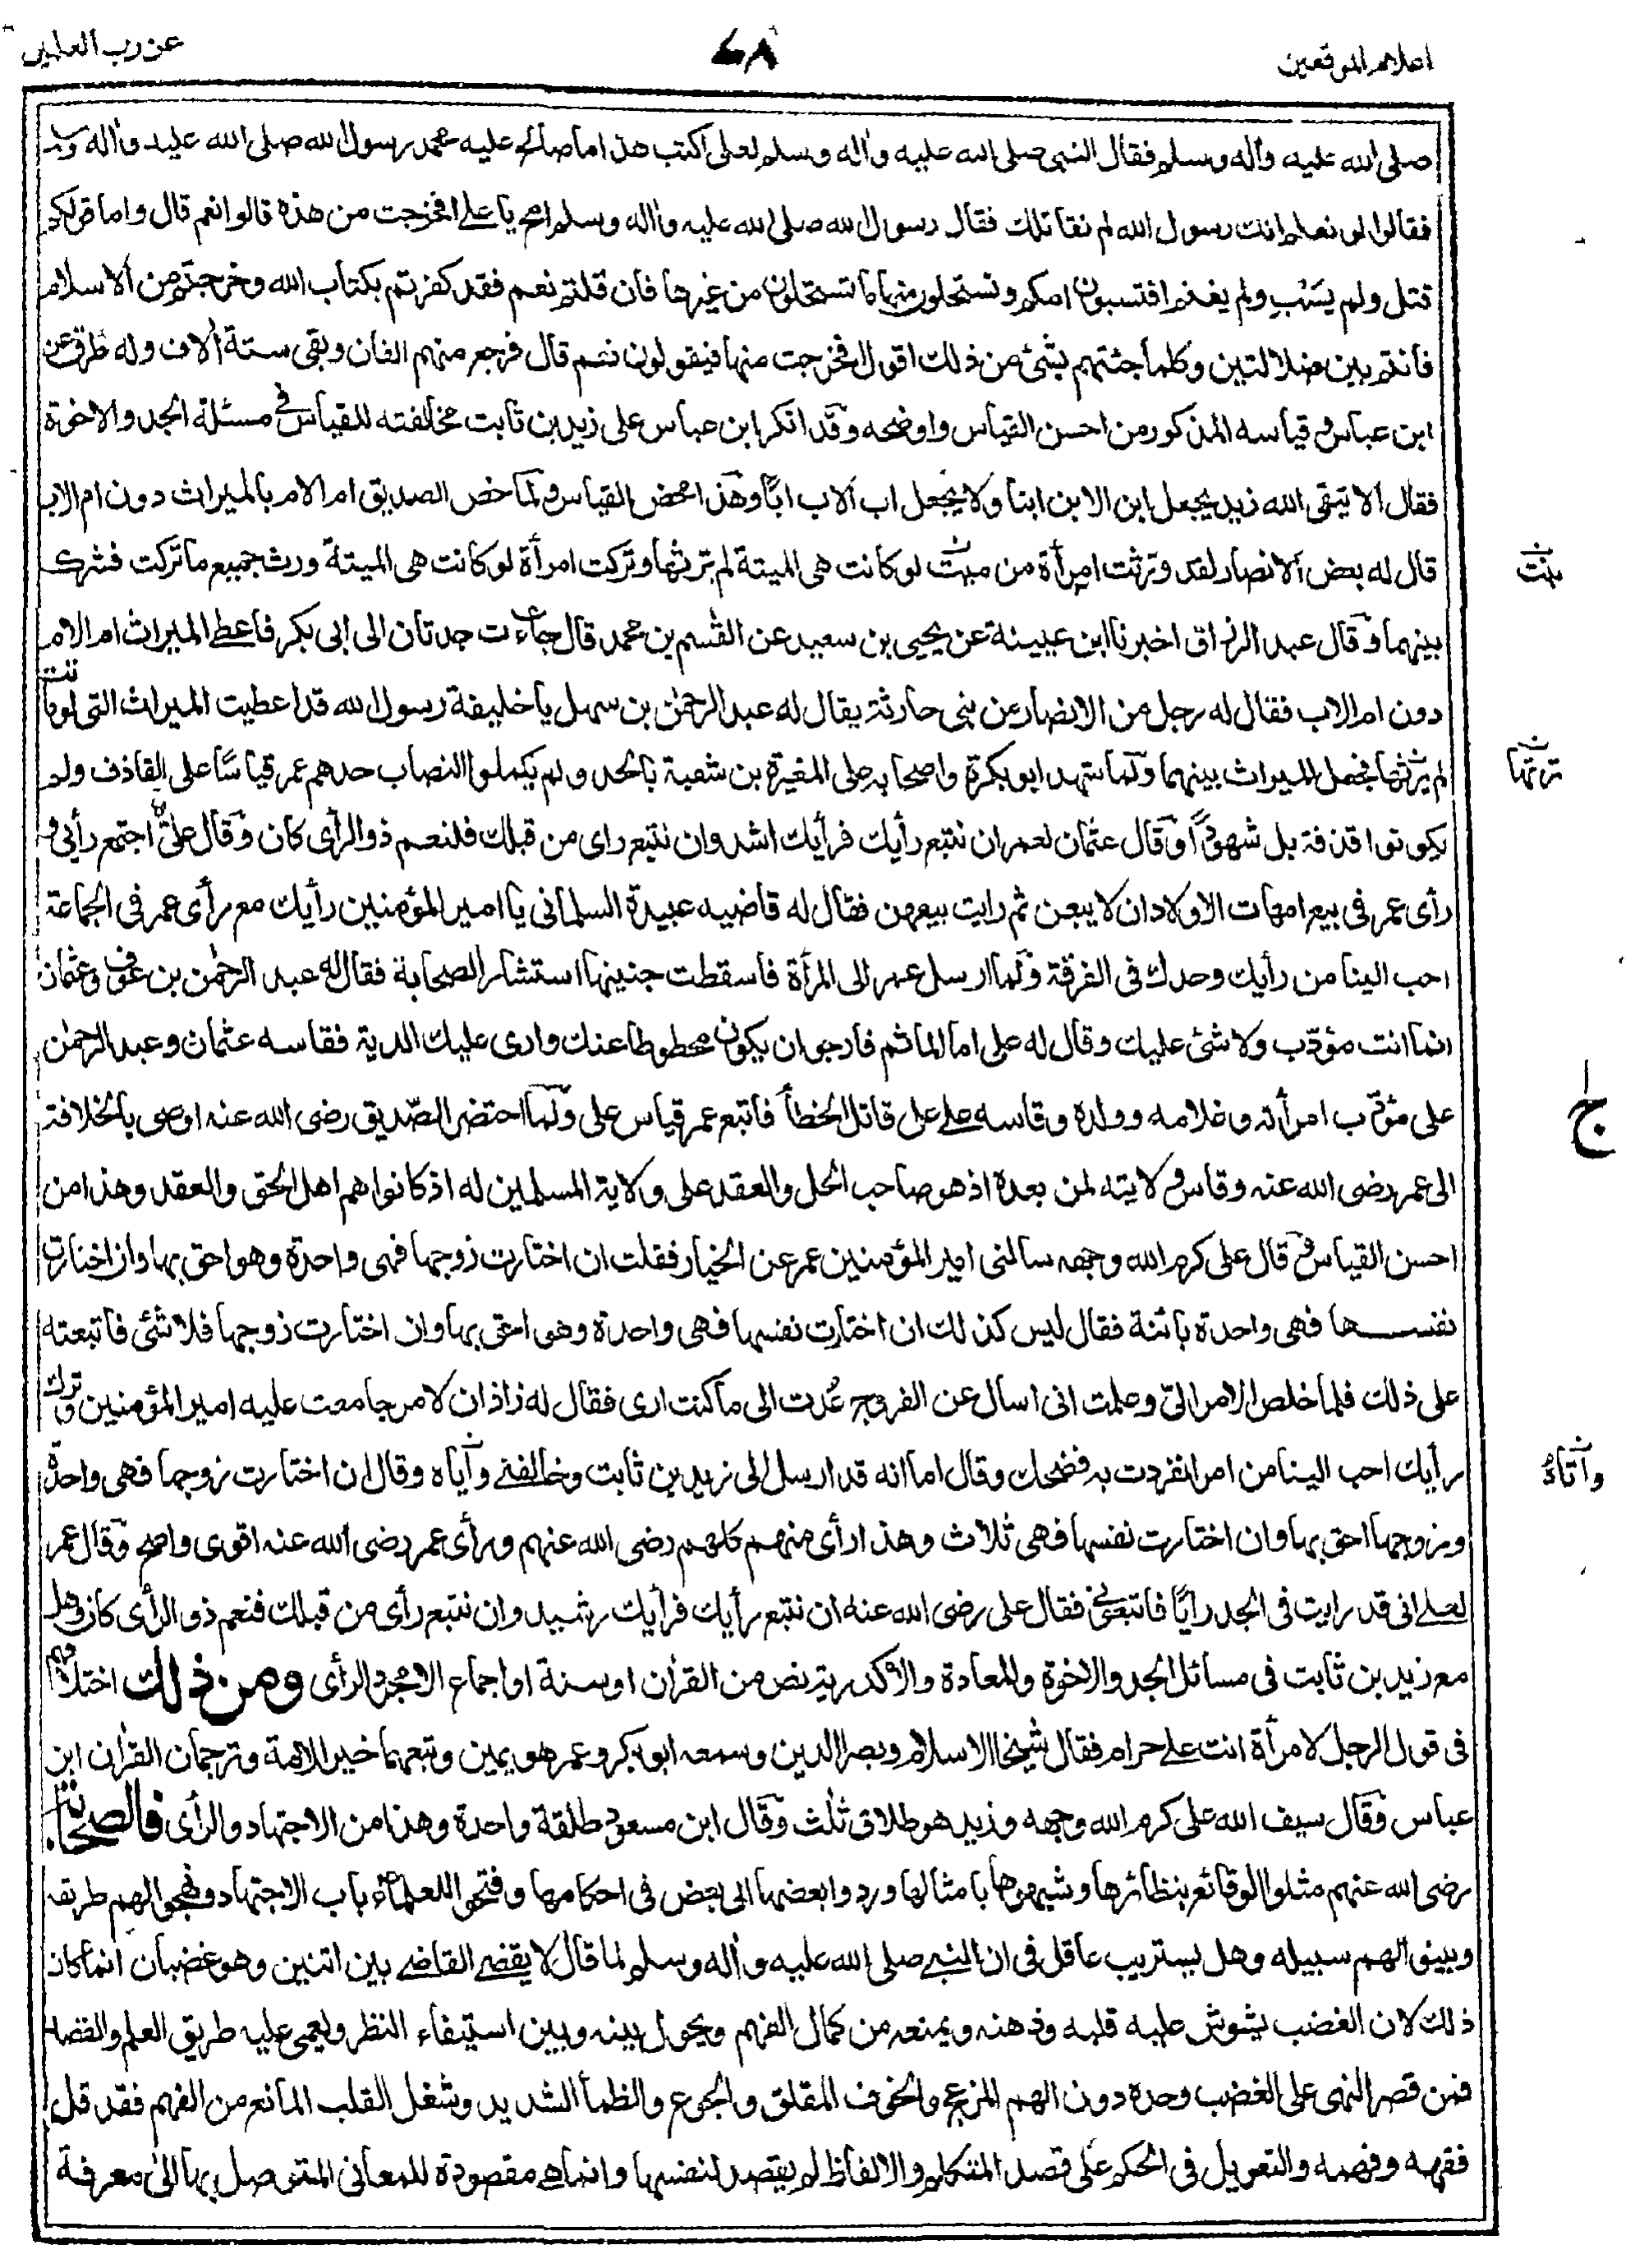 اعلام الموقعين
٧٨
عن رب العلمين
صلى الله عليه وأله وسلم فقال النبي صلى الله عليه وأله وسلم لعلي اكتب هذا ما صالح عليه محمد رسول الله صلى الله عليه وأله وسلم
فقالوا لو نعلم انك رسول الله لم نقاتلك فقال رسول الله صلى الله عليه وأله وسلم امح يا علي افخرجت من هذه قالوا نعم قال واما قولكم
قتل ولم يسب ولم يغنم افتسبون امكم وتستحلون منها ما تستحلون من غيرها فان قلتم نعم فقد كفرتم بكتاب الله وخرجتم من الاسلام
فانتم بين ضلالتين وكلما جئتهم بشئ من ذلك اقول افخرجت منها فيقولون نعم قال فرجع منهم الفان وبقى ستة ألاف وله طرق عن
ابن عباس وقياسه المذكور من احسن القياس واوضحه وقد انكر ابن عباس على زيد بن ثابت مخالفته للقياس في مسئلة الجد والاخوة
فقال الا يتقى الله زيد يجعل ابن الابن ابنا ولا يجعل اب الاب ابا وهذا محض القياس ولما خص الصديق ام الام بالميراث دون ام الاب
قال له بعض الانصار لقد ورثت امرأة من ميت لو كانت هى الميتة لم ترثها وتركت امرأة لو كانت هى الميتة ورث جميع ما تركت فشرك
بينهما وقال عبد الرزاق اخبرنا ابن عيينة عن يحيى بن سعيد عن القسم بن محمد قال جاءت جدتان الى ابى بكر فاعطى الميراث ام الام
دون ام الاب فقال له رجل من الانصار من بنى حارثة يقال له عبد الرحمن بن سهل يا خليفة رسول الله قد اعطيت الميراث التى لو ماتت
لم يرثها فجعل الميراث بينهما ولما شهد ابو بكرة واصحابه على المغيرة بن شعبة بالحد ولم يكملوا النصاب حدهم عمر قياسا على القاذف ولم
يكونوا قذفة بل شهودا وقال عثمان لعمر ان نتبع رأيك فرأيك اشد وان نتبع راى من قبلك فلنعم ذو الرأى كان وقال علي اجتمع رأيى و
رأى عمر فى بيع امهات الاولاد ان لا يبعن ثم رايت بيعهن فقال له قاضيه عبيدة السلمانى يا امير المؤمنين رأيك مع رأى عمر فى الجماعة
احب الينا من رأيك وحدك فى الفرقة ولما ارسل عمر الى المرأة فاسقطت جنينها استشار الصحابة فقال له عبد الرحمن بن عوف وعثمان
انما انت مؤدب ولا شئ عليك وقال له علي اما المأثم فارجو ان يكون محطوطا عنك وارى عليك الدية فقاسه عثمان وعبد الرحمن
على مؤدب امرأته وغلامه وولده وقاسه علي على قاتل الخطأ فاتبع عمر قياس على ولما احتضر الصديق رضى الله عنه اوصى بالخلافة
الى عمر رضى الله عنه وقاس ولايته لمن بعده اذ هو صاحب الحل والعقد على ولاية المسلمين له اذ كانوا هم اهل الحق والعقد وهذا من
احسن القياس وقال على كرم الله وجهه سالنى امير المؤمنين عمر عن الخيار فقلت ان اختارت زوجها فهى واحدة وهو احق بها وان اختارت
نفسها فهى واحدة بائنة فقال ليس كذلك ان اختارت نفسها فهى واحدة وهو احق بها وان اختارت زوجها فلا شئى فاتبعته
على ذلك فلما خلص الامر الىّ وعلمت انى اسال عن الفروج عُدت الى ما كنت ارى فقال له زاذان لامر جامعت عليه امير المؤمنين وترك
رأيك احب الينا من امر انفردت به فضحك وقال اما انه قد ارسل الى زيد بن ثابت وخالفنى واياه وقال ان اختارت زوجها فهى واحدة
وزوجها احق بها وان اختارت نفسها فهى ثلاث وهذا رأى منهم كلهم رضى الله عنهم ورأى عمر رضى الله عنه اقوى واصح وقال عمر
لعلي انى قد رايت فى الجد رايا فاتبعونى فقال على رضى الله عنه ان نتبع رأيك فرأيك رشيد وان نتبع رأى من قبلك فنعم ذو الرأى كان وهل
مع زيد بن ثابت فى مسائل الجد والاخوة والمعادة والاكدرية نص من القرأن او سنة او اجماع الا مجرد الرأى ومن ذلك اختلافهم
فى قول الرجل لامرأة انت علي حرام فقال شيخا الاسلام وبصر الدين وسمعه ابو بكر وعمر هو يمين وتبعهما خير الامة وترجمان القرأن ابن
عباس وقال سيف الله على كرم الله وجهه وزيد هو طلاق ثلث وقال ابن مسعود طلقة واحدة وهذا من الاجتهاد والرأى فالصحابة
رضى الله عنهم مثلوا الوقائع بنظائرها وشبهوها بامثالها وردوا بعضها الى بعض فى احكامها وفتحوا للعلماء باب الاجتهاد ونهجوا لهم طريقه
وبينوا لهم سبيله وهل يستريب عاقل فى ان النبي صلى الله عليه وأله وسلم لما قال لا يقضي القاضي بين اثنين وهو غضبان انما كان
ذلك لان الغضب يشوش عليه قلبه وذهنه ويمنعه من كمال الفهم ويحول بينه وبين استيفاء النظر ويعمى عليه طريق العلم والقصد
فمن قصر النهى على الغضب وحده دون الهم المزعج والخوف المقلق والجوع والظمأ الشديد وشغل القلب المانع من الفهم فقد قل
فقهه وفهمه والتعويل فى الحكم على قصد المتكلم والالفاظ لم يقصد لنفسها وانما هي مقصودة للمعانى المتوصل بها الى معرفة
ترثها
ج
واتاه